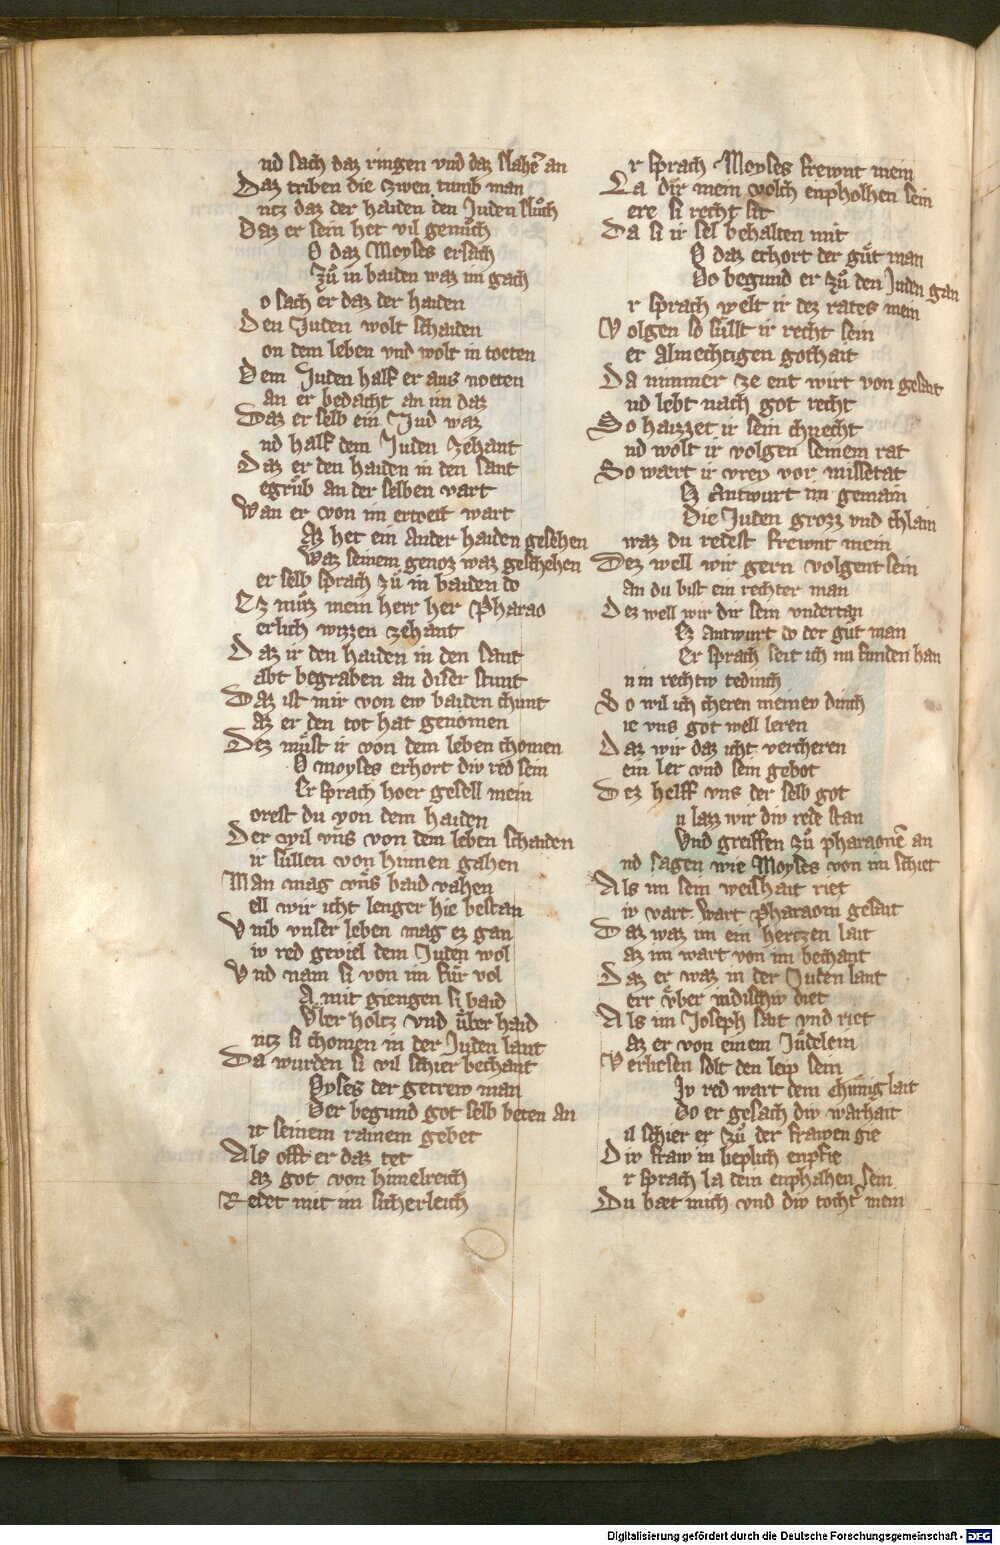 nd sach daz ringen vnd daz slahē an
Daz triben die zwen tumb man
ntz daz der haiden den Juden sluͦch
Daz er sein het vil genuͦch
O daz Moyses ersach
Zuͦ in baiden waz im gach
o sach er daz der haiden
Den Juden wolt schaiden
on dem leben vnd wolt in toeten
Dem Juden half er aus noeten
an er bedacht an im daz
Daz er selb ein Jud waz
nd half dem Juden zehant
Daz er den haiden in den sant
egruͦb an der selben vart
Wan er von im ertoett wart
Az het ein Ander haiden gesehen
Waz seinem genoz waz geschehen
er selb sprach zuͦ in baiden do
Ez muͦz mein herr her Pharao
erlich wizzen zehant
Daz ir den haiden in den sant
abt begraben an diser stunt
Daz ist mir von ew baiden chunt
az er den tot hat genomen
Dez muͤst ir von dem leben chomen
O moyses erhort div red sein
Er sprach hoer gesell mein
orest du von dem haiden
Der wil vns von dem leben schaiden
ir suͤllen von hinnen gahen
Man mag vns baid vahen
ell wir icht lenger hie bestan
Vmb vnser leben mag ez gan
iv red geviel dem Juden wol
Vnd nam si von im fuͤr vol
A mit giengen si baid
Vͤber holtz vnd uͤber haid
ntz si chomen in der Juden lant
Da wurden si vil schier bechant
Oyses der getrew man
Der begund got selb beten an
it seinem rainem gebet
Als offt er daz tet
az got von himelreich
Redet mit im sicherleich
r sprach Moyses frewnt mein
La dir mein volch enpholhen sein
ere si recht sit
Da si ir sel behalten mit
O daz erhort der guͤt man
Do begund er zuͦ den Juden gan
r sprach welt ir dez rates mein
Volgen so suͤllt ir recht sein
er almechtigen gothait
Da nimmer ze ent wirt von gesait
nd lebt nach got recht
So haizzet ir sein chnecht
nd wolt ir volgen seinem rat
So waert ir vrey vor missetat
Ez Antwurt im gemain
Die Juden grozz vnd chlain
waz du redest frewnt mein
Dez well wir gern volgent sein
an du bist ein rechter man
Dez well wir dir sein vndertan
Ez antwurt do der guͤt man
Er sprach seit ich nu funden han
n in rechtiv tedinch
So wil ich cheren meinev dinch
ie vns got well leren
Daz wir daz icht vercheren
ein ler vnd sein gebot
Dez helff vns der selb got
u lazz wir div rede stan
Vnd greiffen zuͦ pharaonē an
nd sagen wie Moyses von im schiet
Als im sein weishait riet
iv vart wart Pharaoni gesait
Daz waz im ein hertzen lait
az im wart von im bechant
Daz er waz in der Juden lant
err vͤber indischiv diet
Als im Joseph sait vnd riet
az er von einem Juͤdelein
Verliesen solt den leip sein
Iv red wart dem chuͤnig lait
Do er gesach div warhait
il schier er zuͦ der frawen gie
Div fraw in lieplich enpfie
r sprach la dein enphahen sein
Du bæt mich vnd div tochtˀ mein
Digitalisierung gefördert durch die Deutsche Forschungsgemeinschaft - DFG